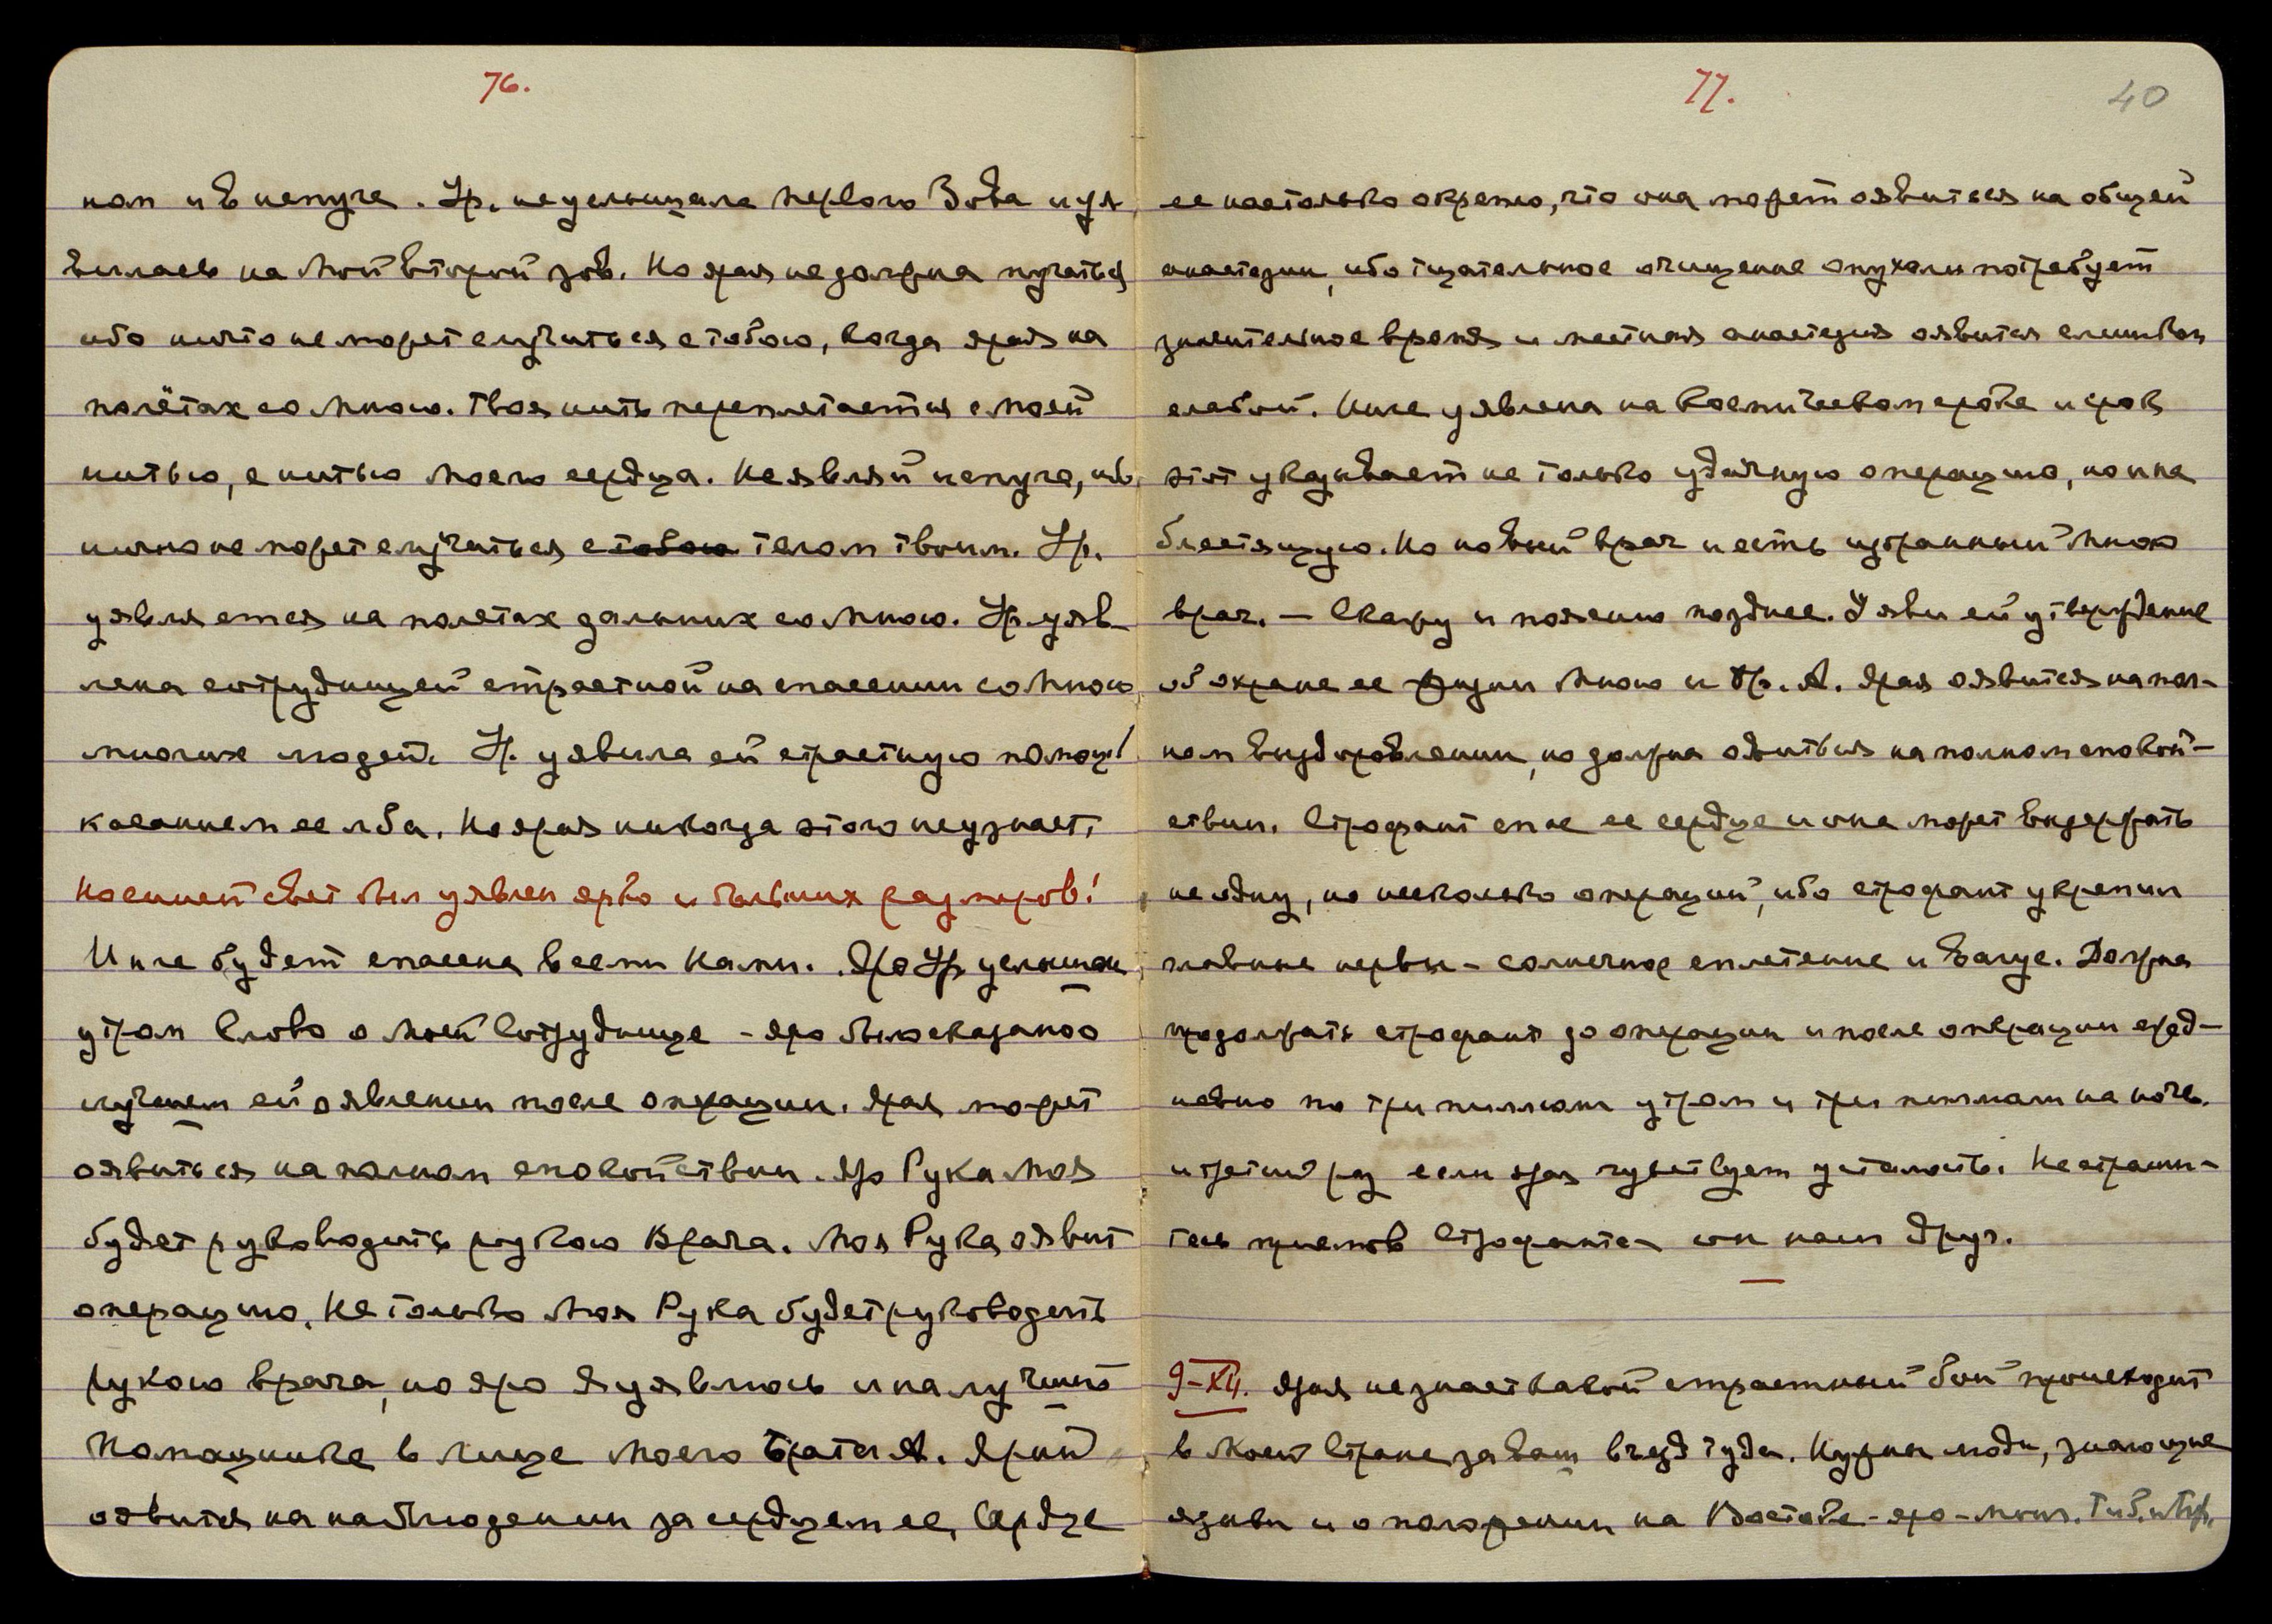 76.
ном и в испуге. Ур. не услышала первого Зова и уя
вилась на Мой второй зов. Но ярая не должна пугаться
ибо ничто не может случиться с тобою, когда ярая на
полётах со Мною. Твоя нить переплетается с моей
нитью, с нитью Моего сердца. Не являй испуга, ибо
ничто не может случиться с тобою телом твоим. Ур.
уявляется на полетах дальних со Мною. Ур. уяв-
лена сотрудницей страстной на спасении со Мною
многих людей. Ур. уявила ей страстную помощь
касанием ее лба. Но ярая никогда этого не узнает.
Но синей свет был уявлен ярко и больших размеров!
Инге будет спасена всеми Нами. Яро Ур. услышала
утром Слово о Моей Сотруднице - яро было сказано о
лучшем ей оявлении после операции. Ярая может
оявиться на полном спокойствии. Яро Рука Моя
будет руководить рукою Врача. Моя Рука оявит
операцию. Не только Моя Рука будет руководить
рукою врача, но яро Я уявлюсь и на лучшего
Помощника в лице Моего Брата А. Ярый
оявится на наблюдении за сердцем ее. Сердце
77.
40
ее настолько окрепло, что она может оявиться на общей
анастезии, ибо тщательное очищение опухоли потребует
значительное время и местная анастезия оявится слишком
слабой. Инге уявлена на Космическом сроке и срок
этот указывает не только удачную операцию, но и на
блестящую. Но новый врач и есть избранный Мною
врач. — Скажу и поясню позднее. Уяви ей утверждение
об охране ее жизни Мною и Бр. А. Ярая оявится на пол-
ном выздоровлении, но должна оявиться на полном спокой-
ствии. Строфант спас ее сердце и она может выдержать
не одну, но несколько операций, ибо строфант укрепил
главные нервы - солнечное сплетение и Вагус. Должна
продолжать строфант до операции и после операции ежед-
невно по три пилюли утром и три пилюли на ночь.
и третий раз если ярая чувствует усталость. Не страши-
тесь приемов Строфанта - он наш друг.
9-XII. Ярая не знает какой страстный бой происходит
в Моей Стране за ваш въезд туда. Нужны люди, знающие
языки и о положении на Востоке - яро - монг. Тиб. и